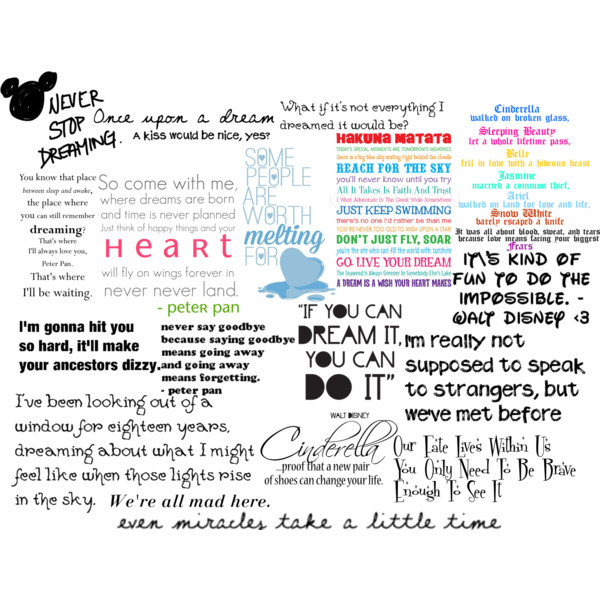 NEVER
STOP
DREAMING.
Once upon a dream
A kiss would be nice, yes?
What if it's not everything I
dreamed it would be?
Cinderella
walked on broken glass,
Sleeping Beauty
let a whole lifetime pass,
Belle
fell in love with a hideous beast
Jasmine
married a common thief,
Ariel
walked on land for love and life,
Snow White
barely escaped a knife
It was all about blood, sweat, and tears
because love means facing your biggest
Fears
You know that place
between sleep and awake,
the place where
you can still remember
dreaming?
That's where
I'll always love you,
Peter Pan.
That's where
I'll be waiting.
So come with me,
where dreams are born
and time is never planned
Just think of happy things and your
HEART
will fly on wings forever in
never never land.
- peter pan
SOME
PEOPLE
ARE
WORTH
melting
FOR
HAKUNA MATATA
TODAY'S SPECIAL MOMENTS ARE TOMORROW'S MEMORIES
there is a big blue sky waiting right behind the clouds
REACH FOR THE SKY
you'll never know until you try
All It Takes Is Faith And Trust
I Want Adventure In The Great Wide Somewhere
JUST KEEP SWIMMING
there's no one i'd rather be than me
YOU'RE NEVER TOO OLD TO WISH UPON A STAR
DON'T JUST FLY, SOAR
you're the one who can fill the world with sunshine
GO LIVE YOUR DREAM
The Seaweed Is Always Greener In Somebody Else's Lake
A DREAM IS A WISH YOUR HEART MAKES
IT'S KIND OF
FUN TO DO THE
IMPOSSIBLE. -
WALT DISNEY <3
I'm gonna hit you
so hard, it'll make
your ancestors dizzy.
never say goodbye
because saying goodbye
means going away
and going away
means forgetting.
- peter pan
"IF YOU CAN
DREAM IT,
YOU CAN
DO IT"
WALT DISNEY
I'm really not
supposed to speak
to strangers, but
we've met before
I've been looking out of a
window for eighteen years,
dreaming about what I might
feel like when those lights rise
in the sky.
We're all mad here.
Cinderella
...proof that a new pair
of shoes can change your life.
Our Fate Lives Within Us
You Only Need To Be Brave
Enough To See It
even miracles take a little time